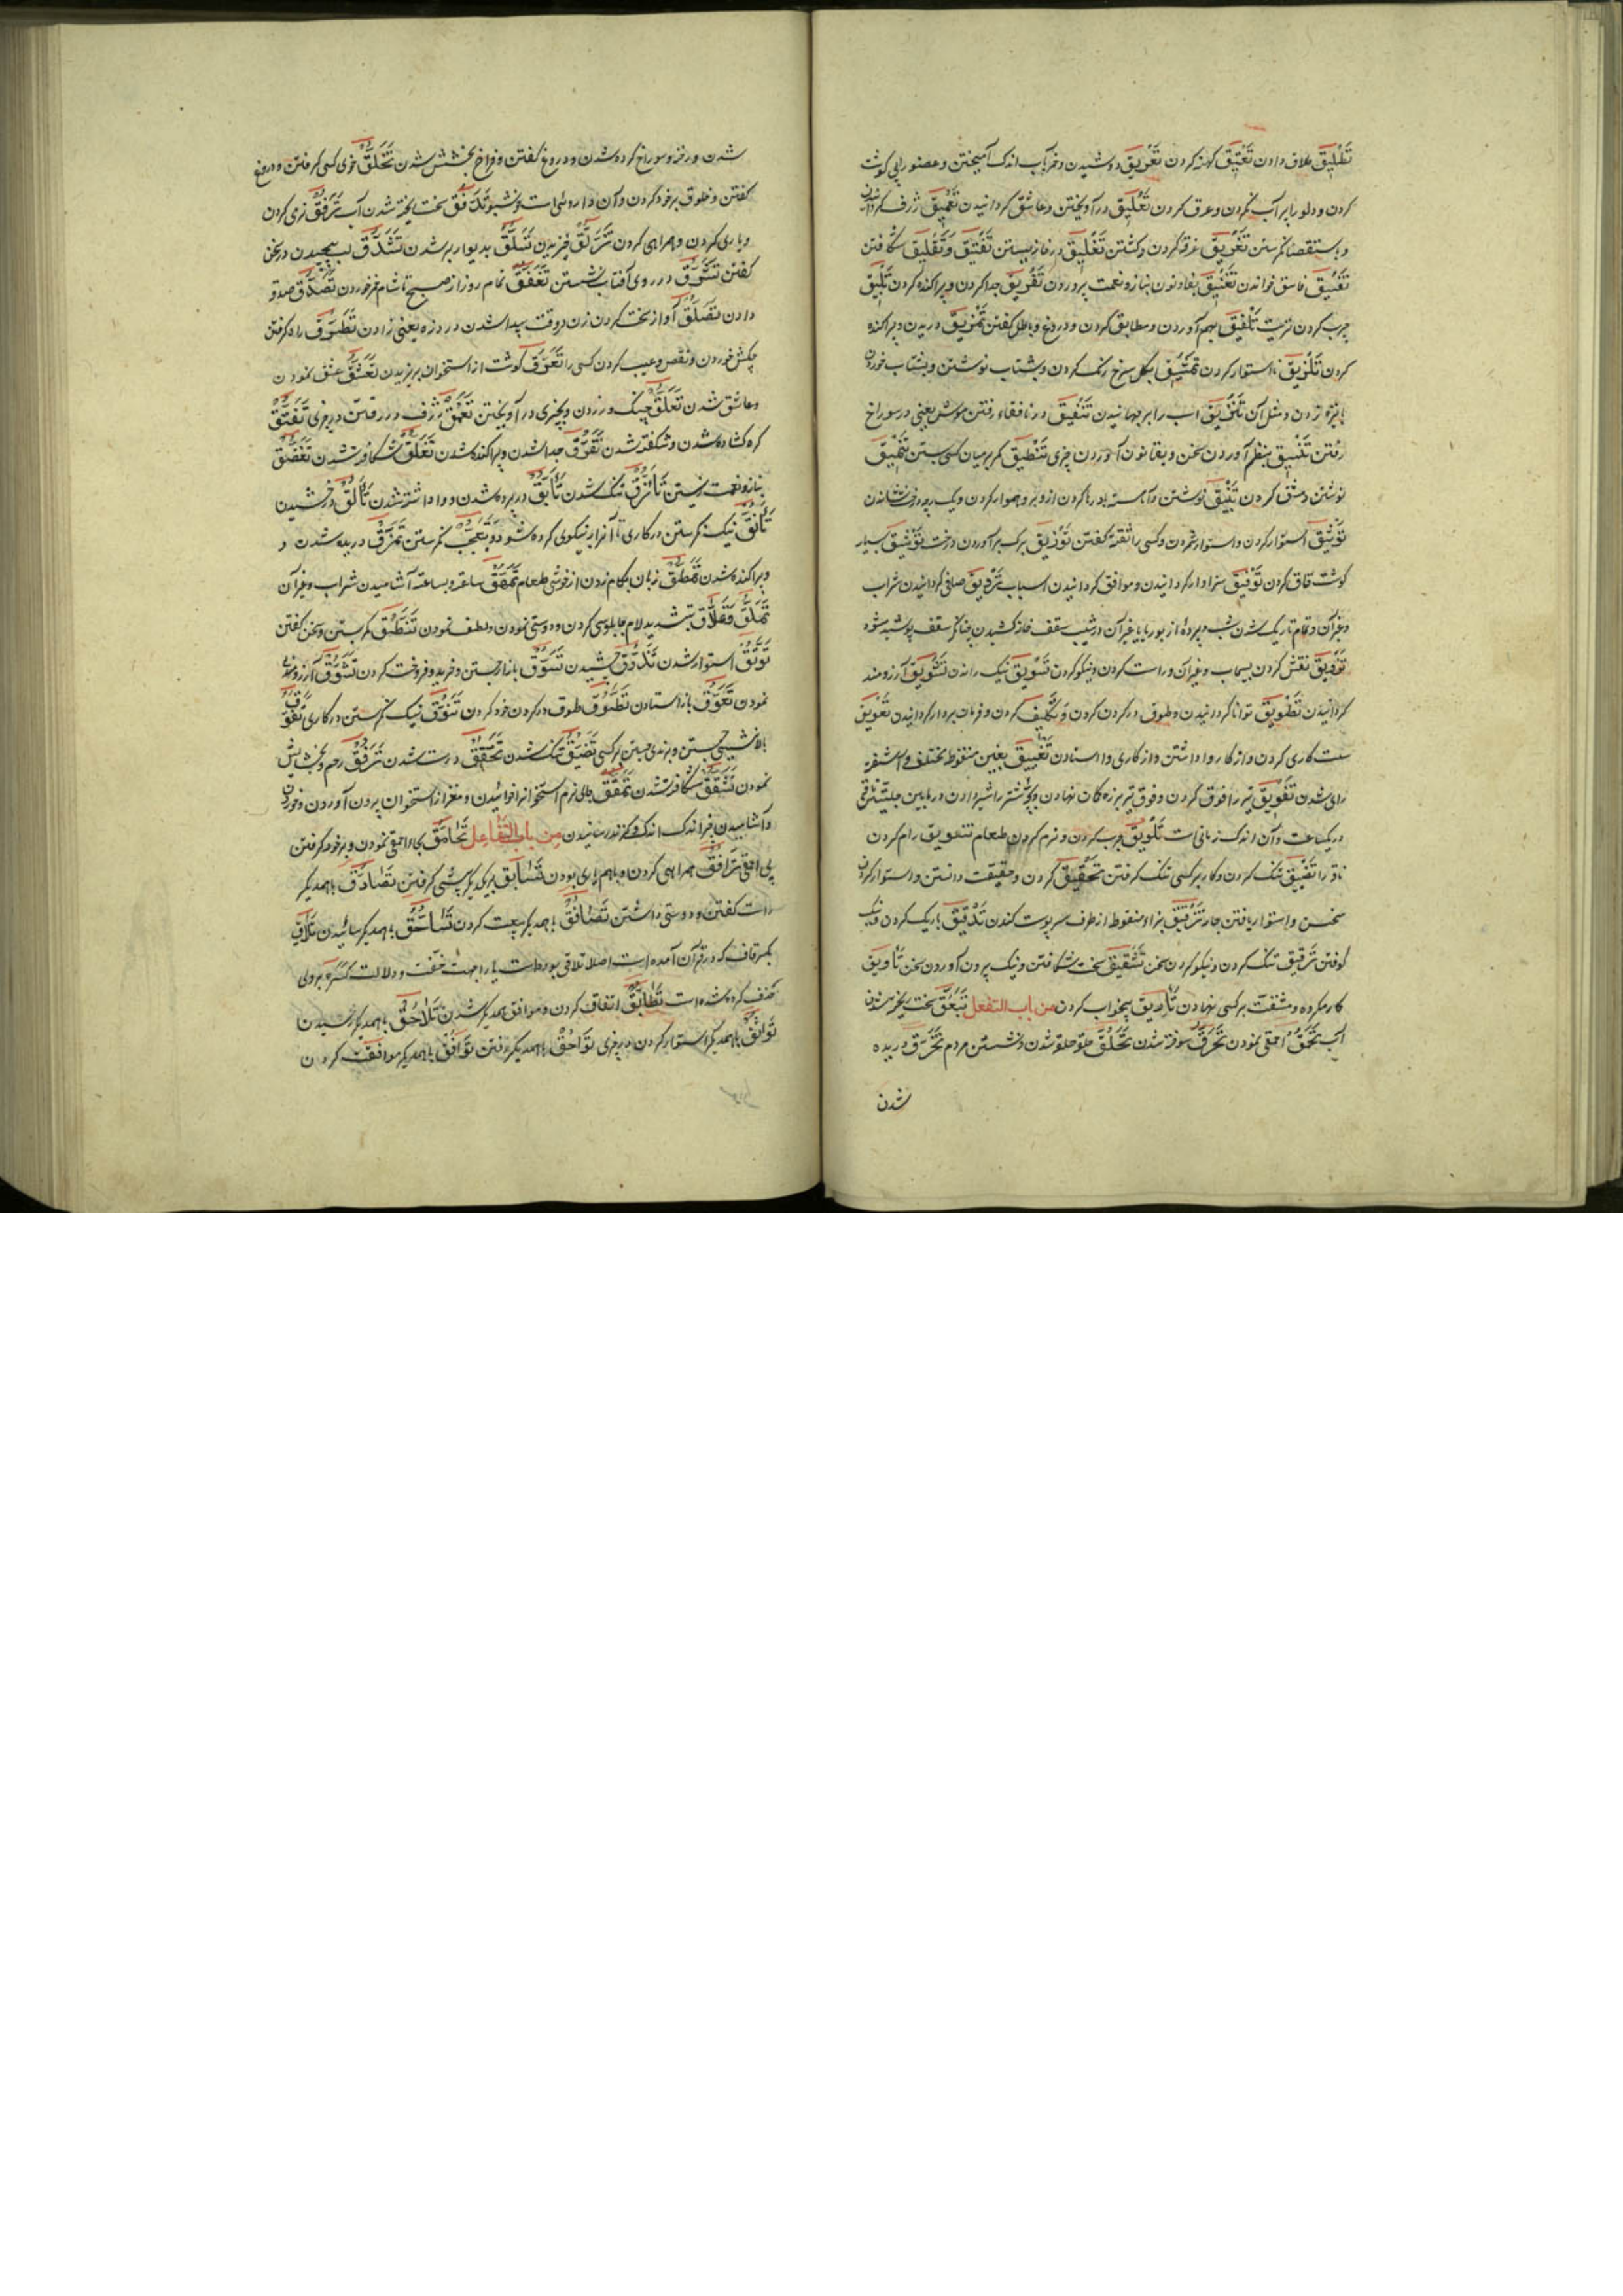 تَطْلیق طلاق دادن تَعْتیق کهنه کردن تَعْریق دوشیدن و خمر بآب اندک آمیختن و عضو را بی گوشت
کردن و دلو را پر آب نکردن و عرق کردن تَعْلیق در آویختن و عاشق گردانیدن تَعْمیق ژرف گردانیدن
و باستقصا نگریستن تَغْریق غرقه کردن و کشتن تَغْلیق در فراز بستن تَفْتیق وَتَفْلیق شکافتن
تَفْسیق فاسق خواندن تَفْنیق بفا و نون بناز و نعمت پروردن تَفْریق جدا کردن و پراکنده کردن
چرب کردن ترید تَلْفیق بهم آوردن و مطابق کردن و دروغ و باطل گفتن تَمْزیق دریدن و پراکنده
کردن تَلْزیق استوار کردن تَمْشیق بگل سرخ رنگ کردن و بشتاب نوشتن و بشتاب خوردن
یا نیزه زدن و مثل آن اسب را بر جهانیدن تَنْفیق در نافقاء رفتن موش یعنی در سوراخ
رفتن تَنْسیق بنظم آوردن سخن و بقانون آوردن چیزی تَنْطیق کمر بر میان کسی بستن تَنْمیق
نوشتن و مشق کردن نوشتن و آراسته
تَوْثیق استوار کردن و استوار شمردن و کسی را ثقه گفتن تَوْریق برگ بر آوردن درخت تَوْشیق بسیار
گوشت قاق کردن تَوْفیق سزاوار گردانیدن و موافق گردانیدن اسباب تَرْویق صافی گردانیدن شراب
و غیر آن و تمام تاریک شدن شب و پرده از بوریا یا غیر آن در شیب سقف خانه کشیدن چنانکه سقف پوشیده شود
تَزْویق نقش کردن بسیماب و غیر آن و راست کردن و نیکو کردن تَسْویق نیک راندن تَشْویق آرزومند
گردانیدن تَطْویق توانا گردانیدن و طوق در گردن کردن وَ تکلیف کردن و فرمان بردار گردانیدن تَعْویق
سست کاری کردن و از کار وا داشتن و از کاری وا استادن تَغْییق بغین منقوطه مختلف و آشفته
رای شدن تَفْویق تیر را فوق کردن و فوق تیر بزه کمان نهادن و بچه شتر را شیر دادن در مابین
در یک ساعت و آن اندک زمانی است تَلْویق چرب کردن و نرم کردن طعام تَنْویق رام کردن
ناقه را تَضْییق تنگ کردن و کار بر کسی تنگ گرفتن تَحْقیق کردن و حقیقت دانستن و استوار کردن
سخن و استوار بافتن جامه تَزْقیق بزاء منقوطه از طرف سر پوست کندن تَدْقیق باریک کردن و نیک
کوفتن تَرْقیق تنک کردن و نیکو کردن سخن تَشْقیق سخت شکافتن و نیک بیرون آوردن سخن تَأْویق
کار مکروه و مشقت بر کسی نهادن تَأْریق بیخواب کردن من باب التفعل تَبَعُّق سخت ریخته شدن
آب تَحَمُّق احمقی نمودن تَحَرُّق سوخته شدن تَحَلُّق حلقه حلقه شدن و نشستن مردم تَخَرُّق دریده
شدن
شدن و رخنه و سوراخ کرده شدن و دروغ گفتن و فراخ بخشش شدن تَخَلُّق خوی کسی گرفتن و دروغ
گفتن و خلوق بر خود کردن و آن داروئی است خوشبو تَدَفُّق سخت ریخته شدن آب تَرَفُّق نرمی کردن
و یاری کردن و همراهی کردن تَزَلُّق لغزیدن تَسَلُّق بدیوار بر شدن تَشَدُّق لب پیچیدن در سخن
گفتن تَشَرُّق در روی آفتاب نشستن تَعَفُّق تمام روز از صبح تا شام خوردن تَصَدُّق صدقه
دادن تَصَلُّق آواز سخت کردن زن در وقت پیدا شدن درد زه یعنی زادن تَطَرُّق راه گرفتن
خوردن و نقص و عیب کردن کسی را تَعَرُّق گوشت از استخوان بریزیدن تَعَشُّق عشق نمودن
و عاشق شدن تَعَلُّق چنگ در زدن و بچیزی در آویختن تَعَمُّق ژرف در رفتن در چیزی تَفَتُّق
کره گشاده شدن و شکفته شدن تَفَرُّق جدا شدن و پراکنده شدن تَفَلُّق شکافته شدن تَفَنُّق
بناز و نعمت زیستن تَأَزُّق تنگ شدن تَأَبُّق در پرده شدن و وا داشته شدن تَأَلُّق درخشیدن
تَأَنُّق نیک نگریستن در کاری تا آنرا بنیکوی کرده شود و بتعجب نگریستن تَمَزُّق دریده شدن و
و پراکنده شدن تَمَطُّق زبان بکام زدن از خوشی طعام تَمَقُّق ساعت بساعت آشامیدن شراب و غیر آن
تَمَلُّق وَتِمِلَّاق بتشدید لام چاپلوسی کردن و دوستی نمودن و لطف نمودن تَنَطُّق کمر بستن و سخن گفتن
تَوَثُّق استوار شدن تَذَوُّق چشیدن تَسَوُّق بازار جستن و خرید و فروخت کردن تَشَوُّق آرزومندی
نمودن تَعَوُّق باز استادن تَطَوُّق طوق در گردن خود کردن تَنَوُّق نیک نگریستن در کاری تَفَوُّق
بالانشینی جستن و بلندی جستن بر کسی تَضَیُّق تنگ شدن تَحَقُّق درست شدن تَرَفُّق رحم و بخشایش
نمودن تَشَقُّق شکافته شدن تَمَقُّق جای نرم استخوان را خوائیدن و مغز از استخوان بیرون آوردن و خوردن
و آشامیدن چیز اندک اندک و گزند رسانیدن من باب التَّفاعل تَحامُق خود را احمق نمودن و بر خود گرفتن
بی احمقی تَرافُق همراهی کردن و باهم یاری بودن تَسابُق بر یکدیگر پیشی گرفتن تَصادُق باهمدیگر
راست گفتن و دوستی داشتن تَصافُق باهمدیگر بیعت کردن تَساحُق باهمدیگر سائیدن تَلاقِ
بکسر قاف که در قرآن آمده است اصلا تلاقی بوده است یا را جهت خفت و دلالت کسره بروی
حذف کرده شده است تَطابُق اتفاق کردن و موافق همدیگر شدن تَلاحُق باهمدیگر رسیدن
تَواثُق باهمدیگر استوار کردن در چیزی تَواحُق باهمدیگر رفتن تَوافُق باهمدیگر موافقت کردن